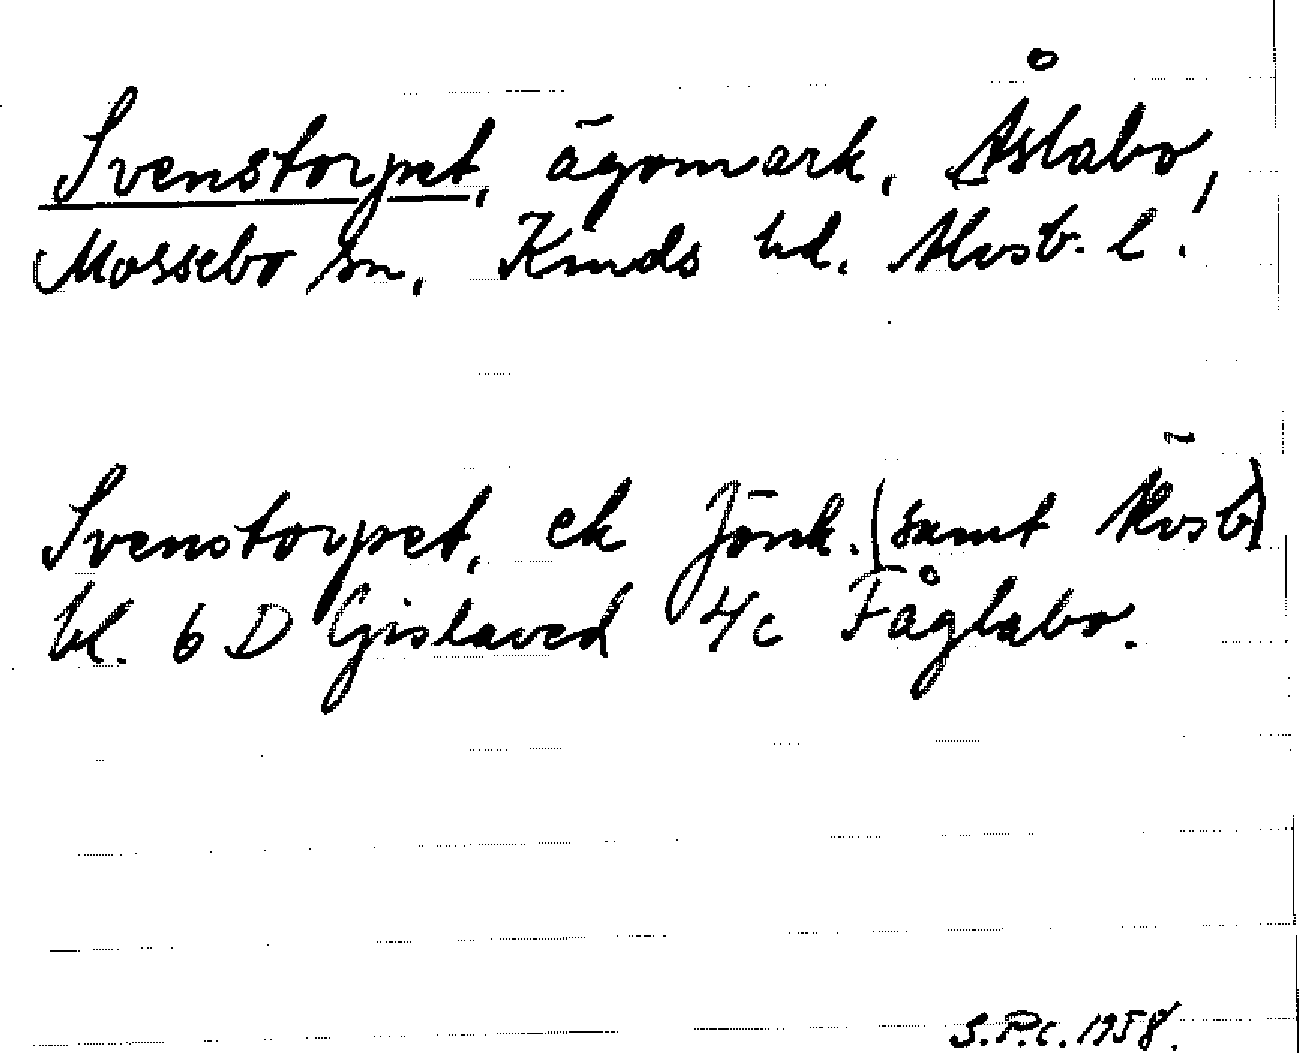 Svenstorpet, ägomark, Åslabo,
Mossebo sn, Kinds hd. Älvsb. l.
Svenstorpet, ek Jönk. (samt Älvsb)
bl. 6 D Gislaved 4c Fåglabo.
S.P.c. 1958.